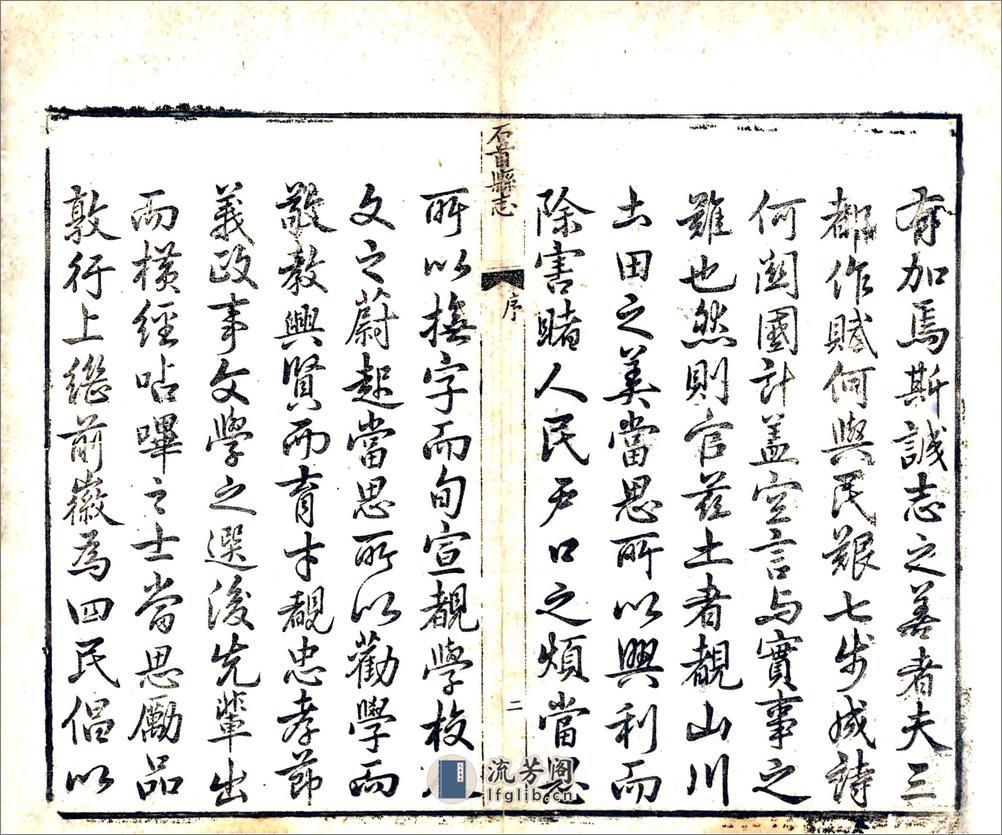 有加焉斯誠志之善者夫三
都作賦何與民艱七步成詩
何關國計蓋空言与實事之
難也然則官茲土者覩山川
土田之美當思所以興利而
除害睹人民戶口之煩當思
石首縣志
序
二
所以撫字而旬宣覩學校
文之蔚起當思所以勸學而
敬教興賢而育才覩忠孝節
義政事文學之選後先輩出
而橫經呫嗶之士當思勵品
敦行上繼前徽為四民倡以
流芳阁
lfglib.cn